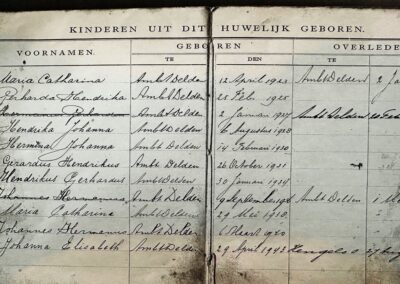 KINDEREN UIT DIT HUWELIJK GEBOREN.
VOORNAMEN. GEBOREN OVERLEDE
TE DEN TE
Maria Catharina Ambt Delden 12 April 1923 Ambt Delden 2 Ja
Gerharda Hendrika Ambt Delden 25 Feb. 1925
Ambt Delden 2 Januari 1927 Ambt Delden
Hendrika Johanna Ambt Delden 6 Augustus 1928
Hermina Johanna Ambt Delden 14 Februari 1930
Gerardus Hendrikus Ambt Delden 26 October 1931
Hendrikus Gerhardus Ambt Delden 30 Januari 1934
Johannes Hermannus Ambt Delden 9 September Ambt Delden
Maria Catharina Ambt Delden 29 Mei
Johannes Hermannus Ambt Delden Maart 1940
Johanna Elisabeth Ambt Delden 29 April 1943 Hengelo o